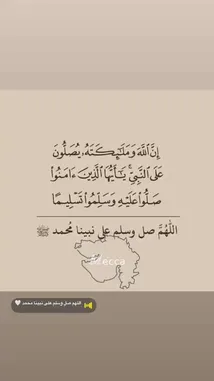 إِنَّ ٱللَّهَ وَمَلَـٰٓئِكَتَهُۥ يُصَلُّونَ
عَلَى ٱلنَّبِىِّ ۚ يَـٰٓأَيُّهَا ٱلَّذِينَ ءَامَنُوا۟
صَلُّوا۟ عَلَيْهِ وَسَلِّمُوا۟ تَسْلِيمًا
اللَّهُمَّ صل وسلم على نبينا مُحمد ﷺ
اللهم صل وسلم على نبينا محمد